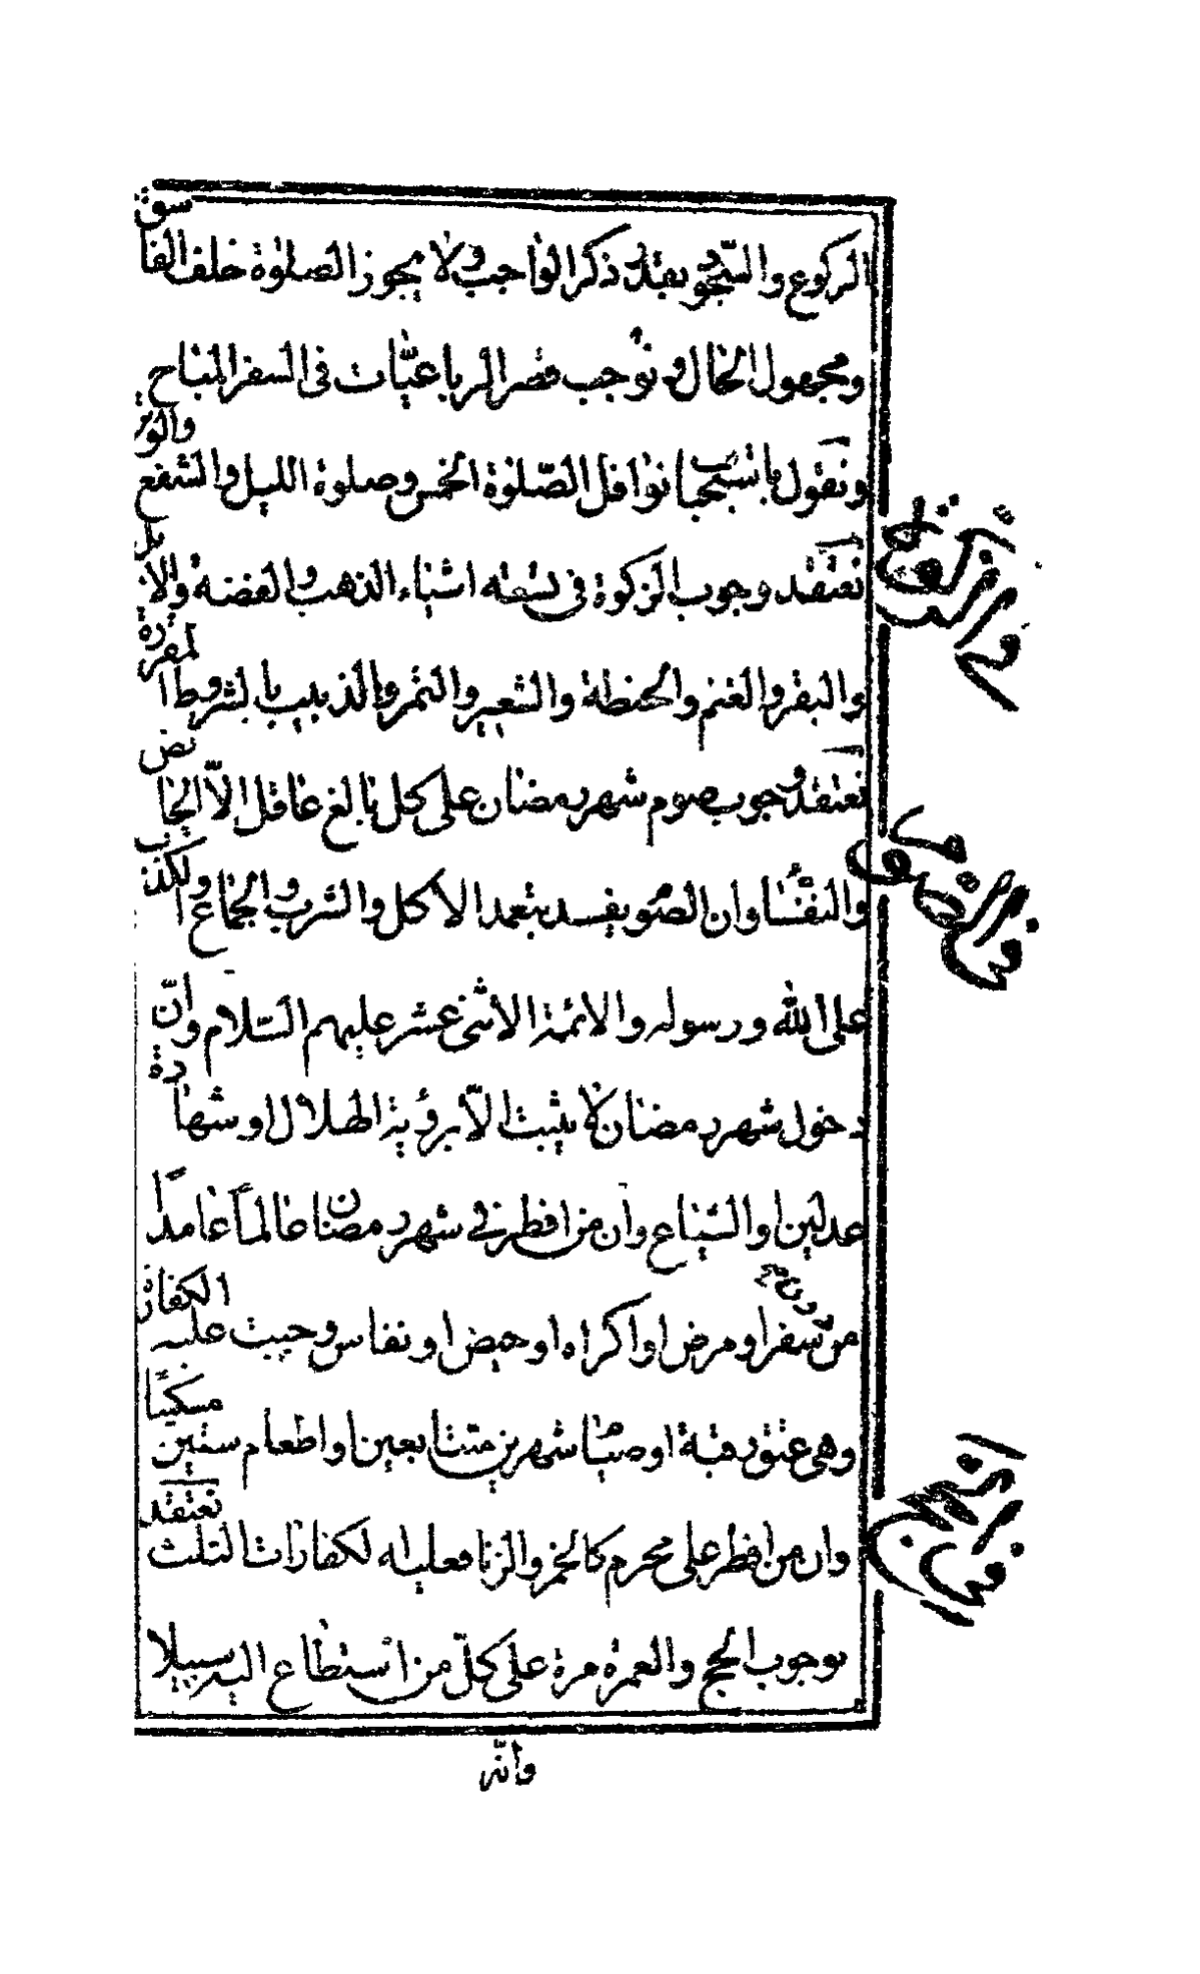 الركوع والسّجود بقدر ذكر الواجب ولا يجوز الصلوٰة خلف الفاسق
ومجهول الحال ونوجب قصر الرباعيّات في السفر المباح
ونقول باستحباب نوافل الصّلوٰة الخمس وصلوة الليل والشفع والوتر
نعتقد وجوب الزكوة في تسعه اشياء الذهب والفضه والابل
والبقر والغنم والحنطة والشعير والتمر والذبيب بالشروط المقررة
نعتقد وجوب صوم شهر رمضان على كل بالغ عاقل الّا الحايض
والنفساء وان الصوم يفسد بتعمد الاكل والشرب والجماع والكذب
على الله ورسوله والائمة الاثنى عشر عليهم السّلام وانّ
دخول شهر رمضان لا يثبت الّا برؤية الهلال او شهادة
عدلين او الشياع وان من افطر في شهر رمضان عالماً عامداً
من دون سفر او مرض او اكراه او حيض او نفاس وجبت عليه الكفارة
وهى عتق رقبة او صيام شهرين متتابعين او اطعام ستين مسكيناً
وان من افطر على محرم كالخمر والزنا فعليه الكفارات الثلث نعتقد
بوجوب الحج والعمرة مرة على كلّ من استطاع اليه سبيلا
وانّه